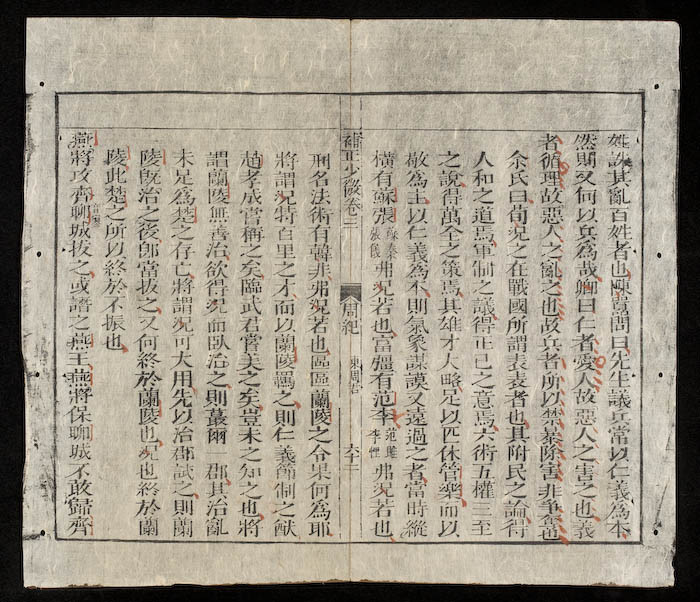 姓誅其亂百姓者也陳嚻問曰先生議兵當以仁義爲本
然則又何以兵爲哉卿曰仁者愛人故惡人之害之也義
者循理故惡人之亂之也故兵者所以禁暴除害非爭奪也
余氏曰荀况之在戰國所謂表表者也其附民之論得
人和之道焉軍制之議得正己之意焉六術五權三至
之說得萬全之策焉其雄才大略足以匹休管樂而以
敬爲主以仁義爲本則氣象謀謨又遠過之者當時縱
橫有蘇張蘇秦張儀弗况若也富彊有范李范雎李悝弗况若也
補正少微卷三 周紀 東周君
刑名法術有韓非弗况若也區區蘭陵之令果何爲耶
將謂况特百里之才而以蘭陵羈之則仁義節制之猷
趙孝成嘗稱之矣臨武君嘗美之矣豈未之知之也將
謂蘭陵無善治欲得况而臥治之則蕞爾 郡其治亂
未足爲楚之存亡將謂况可大用先以治郡試之則蘭
陵旣治之後卽當拔之又何終於蘭陵也况也終於蘭
陵此楚之所以終於不振也
燕將攻齊聊城拔之或譖之燕王燕將保聊城不敢歸齊